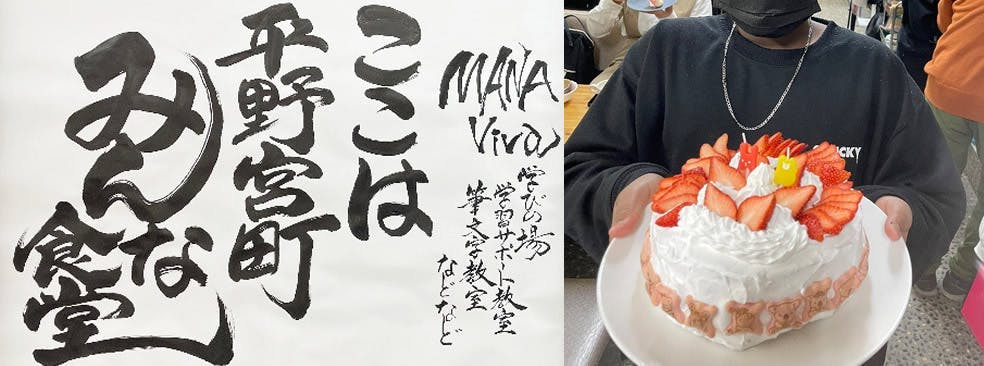 MANA
Viva
学びの場
学習サポート教室
筆文字教室
などなど
ここは
平野宮町
みんな
食堂